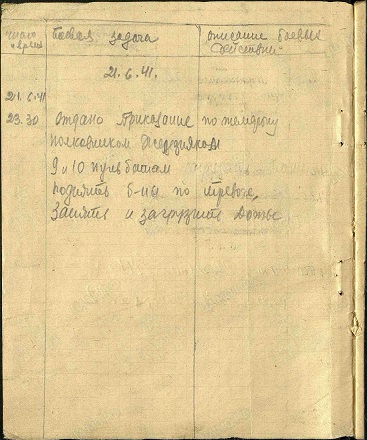 число и время
боевая задача
описание боевых действий
21.6.41.
21.6.41
23.30 отдано приказание по телефону
полковником
9 и 10 пульбатам
поднять б-ны по тревоге,
занять и загрузить дот'ы